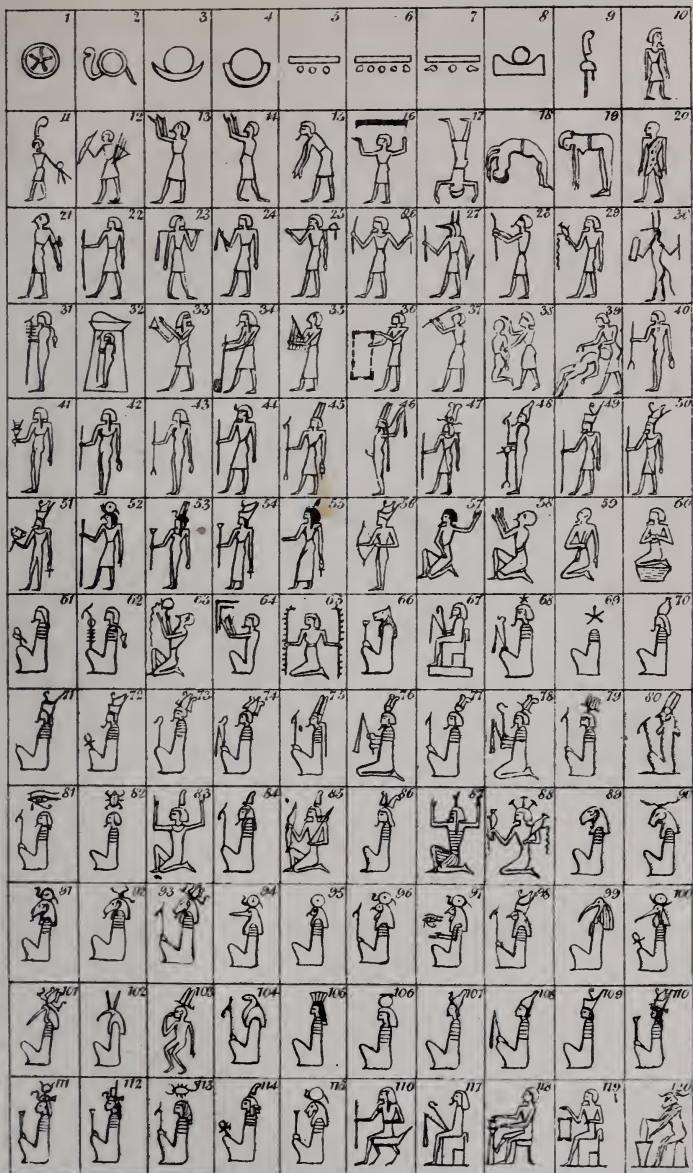 1 2 3 4 5 6 7 8 9 10
11 12 13 14 15 16 17 18 19 20
21 22 23 24 25 26 27 28 29 30
31 32 33 34 35 36 37 38 39 40
41 42 43 44 45 46 47 48 49 50
51 52 53 54 55 56 57 58 59 60
61 62 63 64 65 66 67 68 69 70
71 72 73 74 75 76 77 78 79 80
81 82 83 84 85 86 87 88 89 90
91 92 93 94 95 96 97 98 99 100
101 102 103 104 105 106 107 108 109 110
111 112 113 114 115 116 117 118 119 120